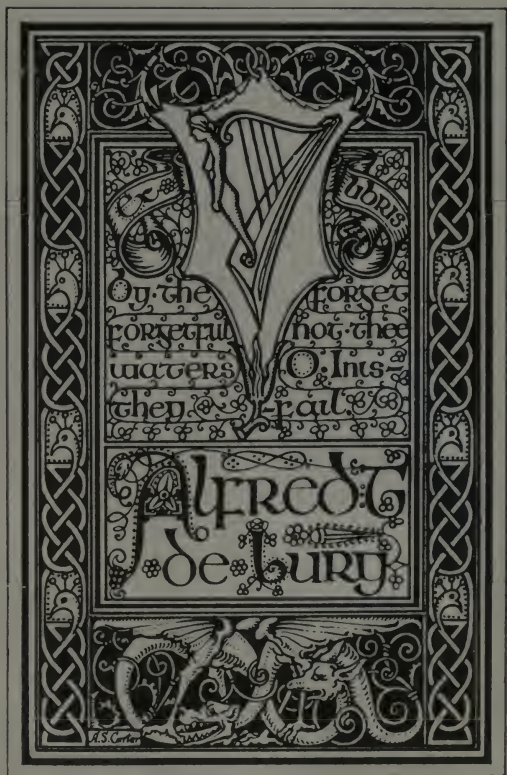 Ex Libris
By·the
forgetful
waters
they
forget
not·thee
O·Inis-
-fail.
Alfred·T
de Lury
A.S. Carter